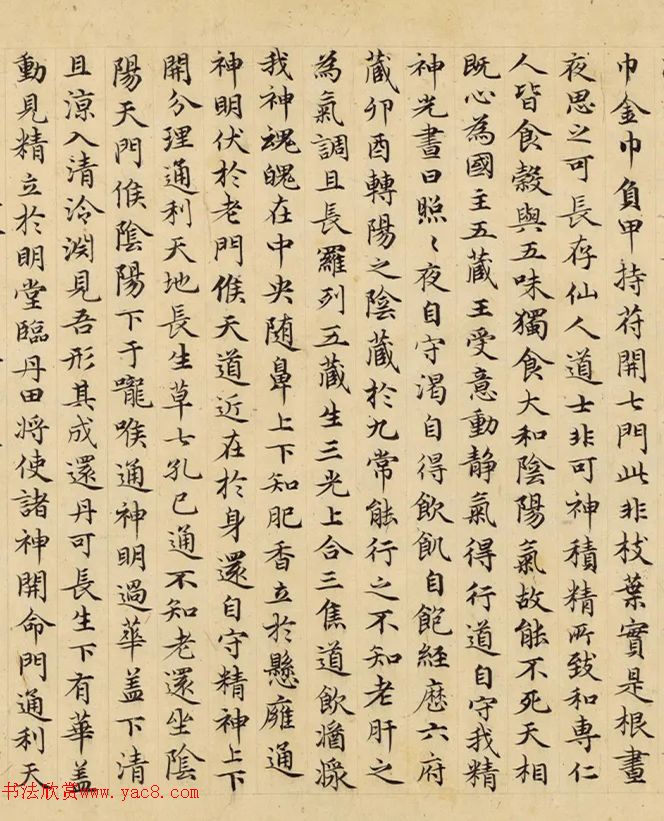 巾金巾負甲持苻開七門此非枝葉實是根晝
夜思之可長存仙人道士非可神積精所致和専仁
人皆食穀與五味獨食大和陰陽氣故能不死天相
既心為國主五蔵王受意動静氣得行道自守我精
神光晝日照〻夜自守渴自得飲飢自飽経歷六府
蔵卯酉轉陽之陰蔵於九常能行之不知老肝之
為氣調且長羅列五蔵生三光上合三焦道飲漿
我神魂魄在中央随鼻上下知肥香立於懸廱通
神明伏於老門候天道近在於身還自守精神上下
開分理通利天地長生草七孔已通不知老還坐陰
陽天門候陰陽下于嚨喉通神明過華盖下清
且涼入清泠淵見吾形其成還丹可長生下有華盖
動見精立於明堂臨丹田将使諸神開命門通利天
书法欣赏www.yac8.com